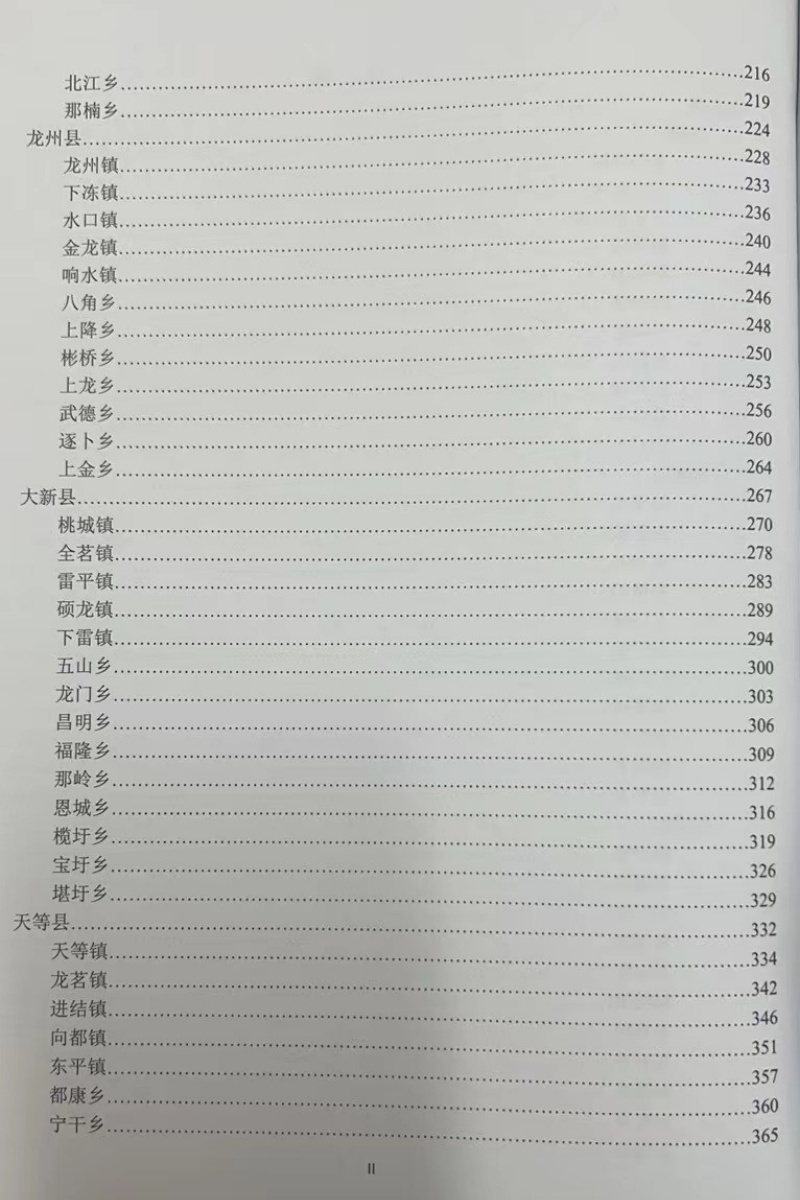 北江乡 216
那楠乡 219
龙州县 224
龙州镇 228
下冻镇 233
水口镇 236
金龙镇 240
响水镇 244
八角乡 246
上降乡 248
彬桥乡 250
上龙乡 253
武德乡 256
逐卜乡 260
上金乡 264
大新县 267
桃城镇 270
全茗镇 278
雷平镇 283
硕龙镇 289
下雷镇 294
五山乡 300
龙门乡 303
昌明乡 306
福隆乡 309
那岭乡 312
恩城乡 316
榄圩乡 319
宝圩乡 326
堪圩乡 329
天等县 332
天等镇 334
龙茗镇 342
进结镇 346
向都镇 351
东平镇 357
都康乡 360
宁干乡 365
II